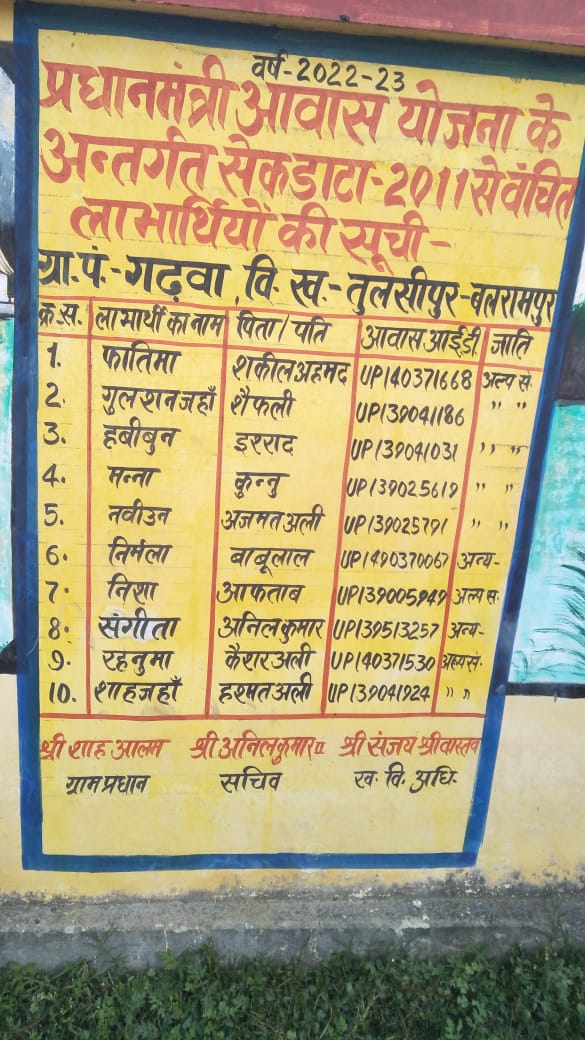 वर्ष-2022-23
प्रधानमंत्री आवास योजना के
अन्तर्गत सेकडाटा-2011 से वंचित
लाभार्थियों की सूची-
ग्रा.पं.-गढ़वा, वि. ख.-तुलसीपुर-बलरामपुर
क्र.स. लाभार्थी का नाम पिता/पति आवास आईडी जाति
1. फातिमा शकील अहमद UP140371668 अल्प सं.
2. गुलशन जहाँ शैफली UP139041186 " "
3. हबीबुन इरराद UP139041031 " "
4. मन्ना कुन्नु UP139025619 " "
5. नवीउन अजमत अली UP139025791 " "
6. निर्मला बाबूलाल UP1490370067 अन्य-
7. निशा आफताब UP139005949 अल्प सं.
8. संगीता अनिल कुमार UP139513257 अन्य-
9. रहनुमा कैशर अली UP140371530 अल्प सं.
10. शाहजहाँ हश्मत अली UP139041924 " "
श्री शाह आलम श्री अनिल कुमार II श्री संजय श्रीवास्तव
ग्राम प्रधान सचिव ख. वि. अधि.